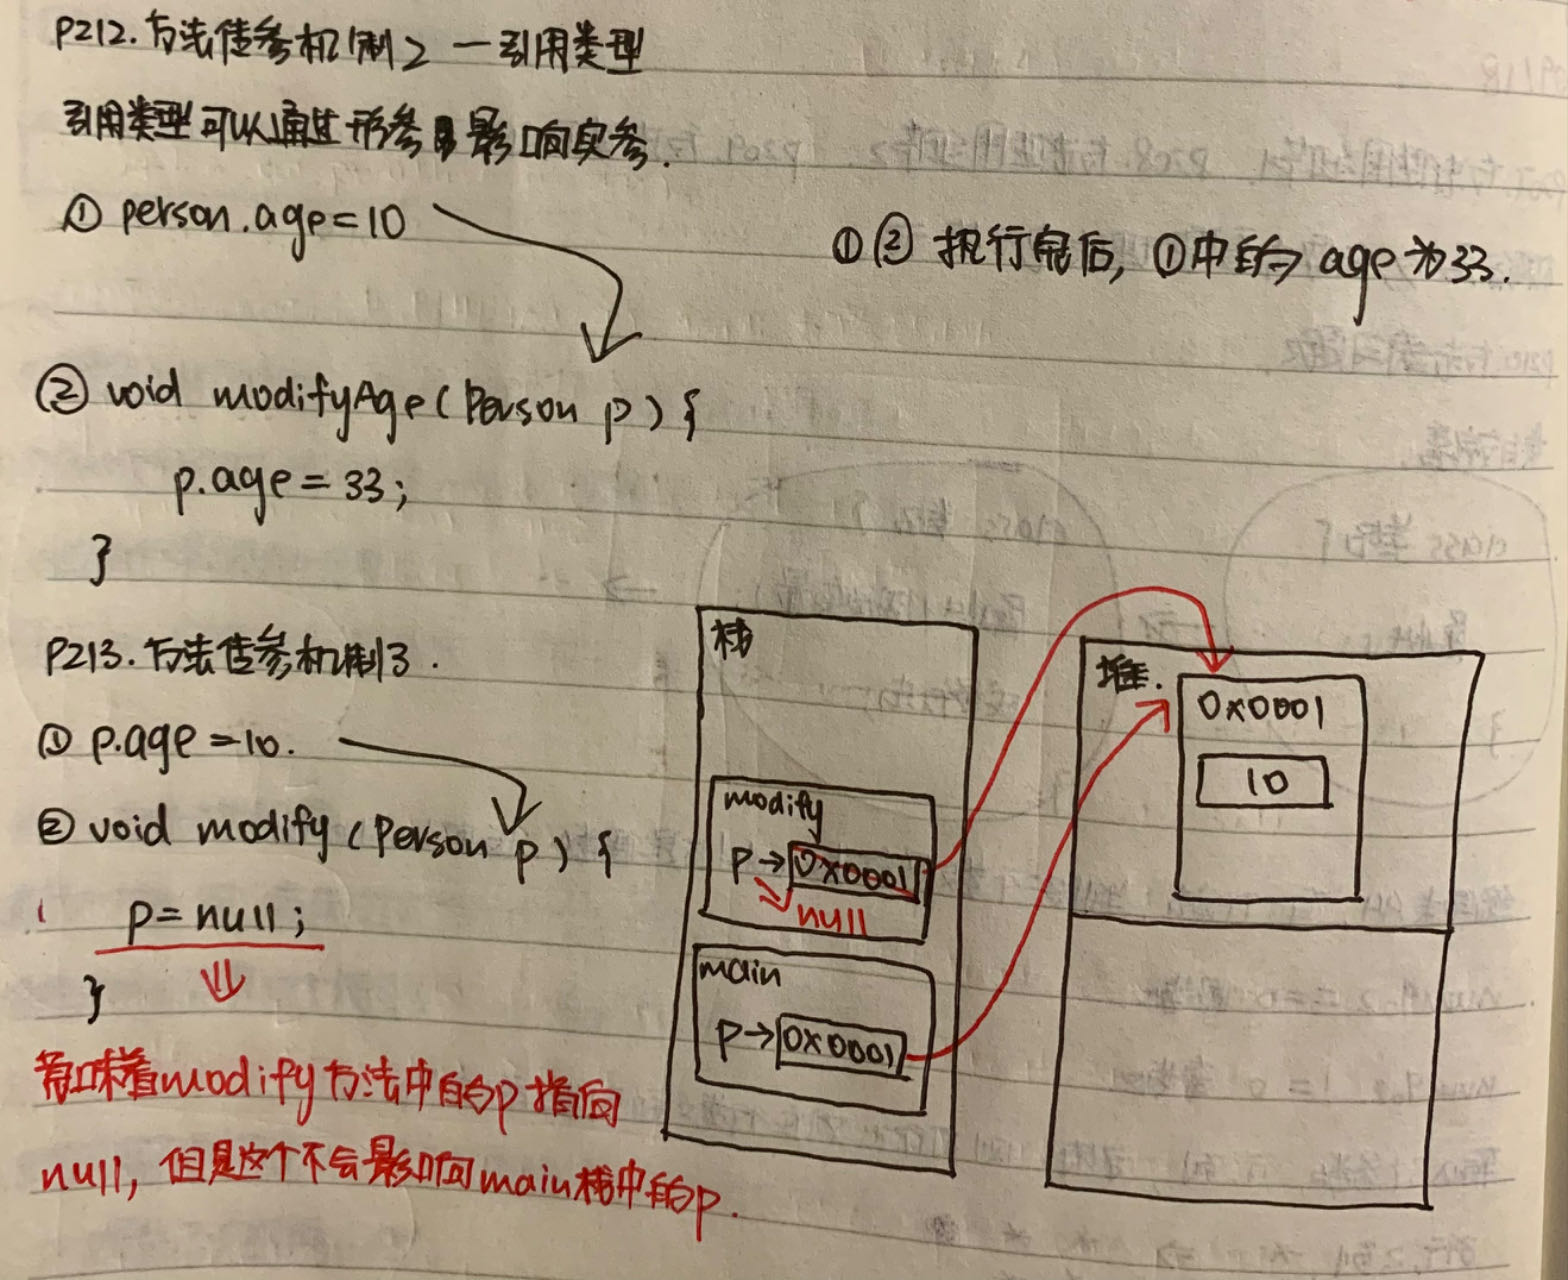 P212. 方法传参机制2 — 引用类型
引用类型可以通过形参影响实参.
① person.age=10
①② 执行完后, ①中的 age 为33.
② void modifyAge(Person p) {
p.age = 33;
}
P213. 方法传参机制3.
① p.age=10.
② void modify (Person p) {
p=null;
}
意味着modify方法中的p指向
null, 但是这个不会影响main栈中的p.
栈
modify
p→ 0x0001
null
main
p→ 0x0001
堆.
0x0001
10